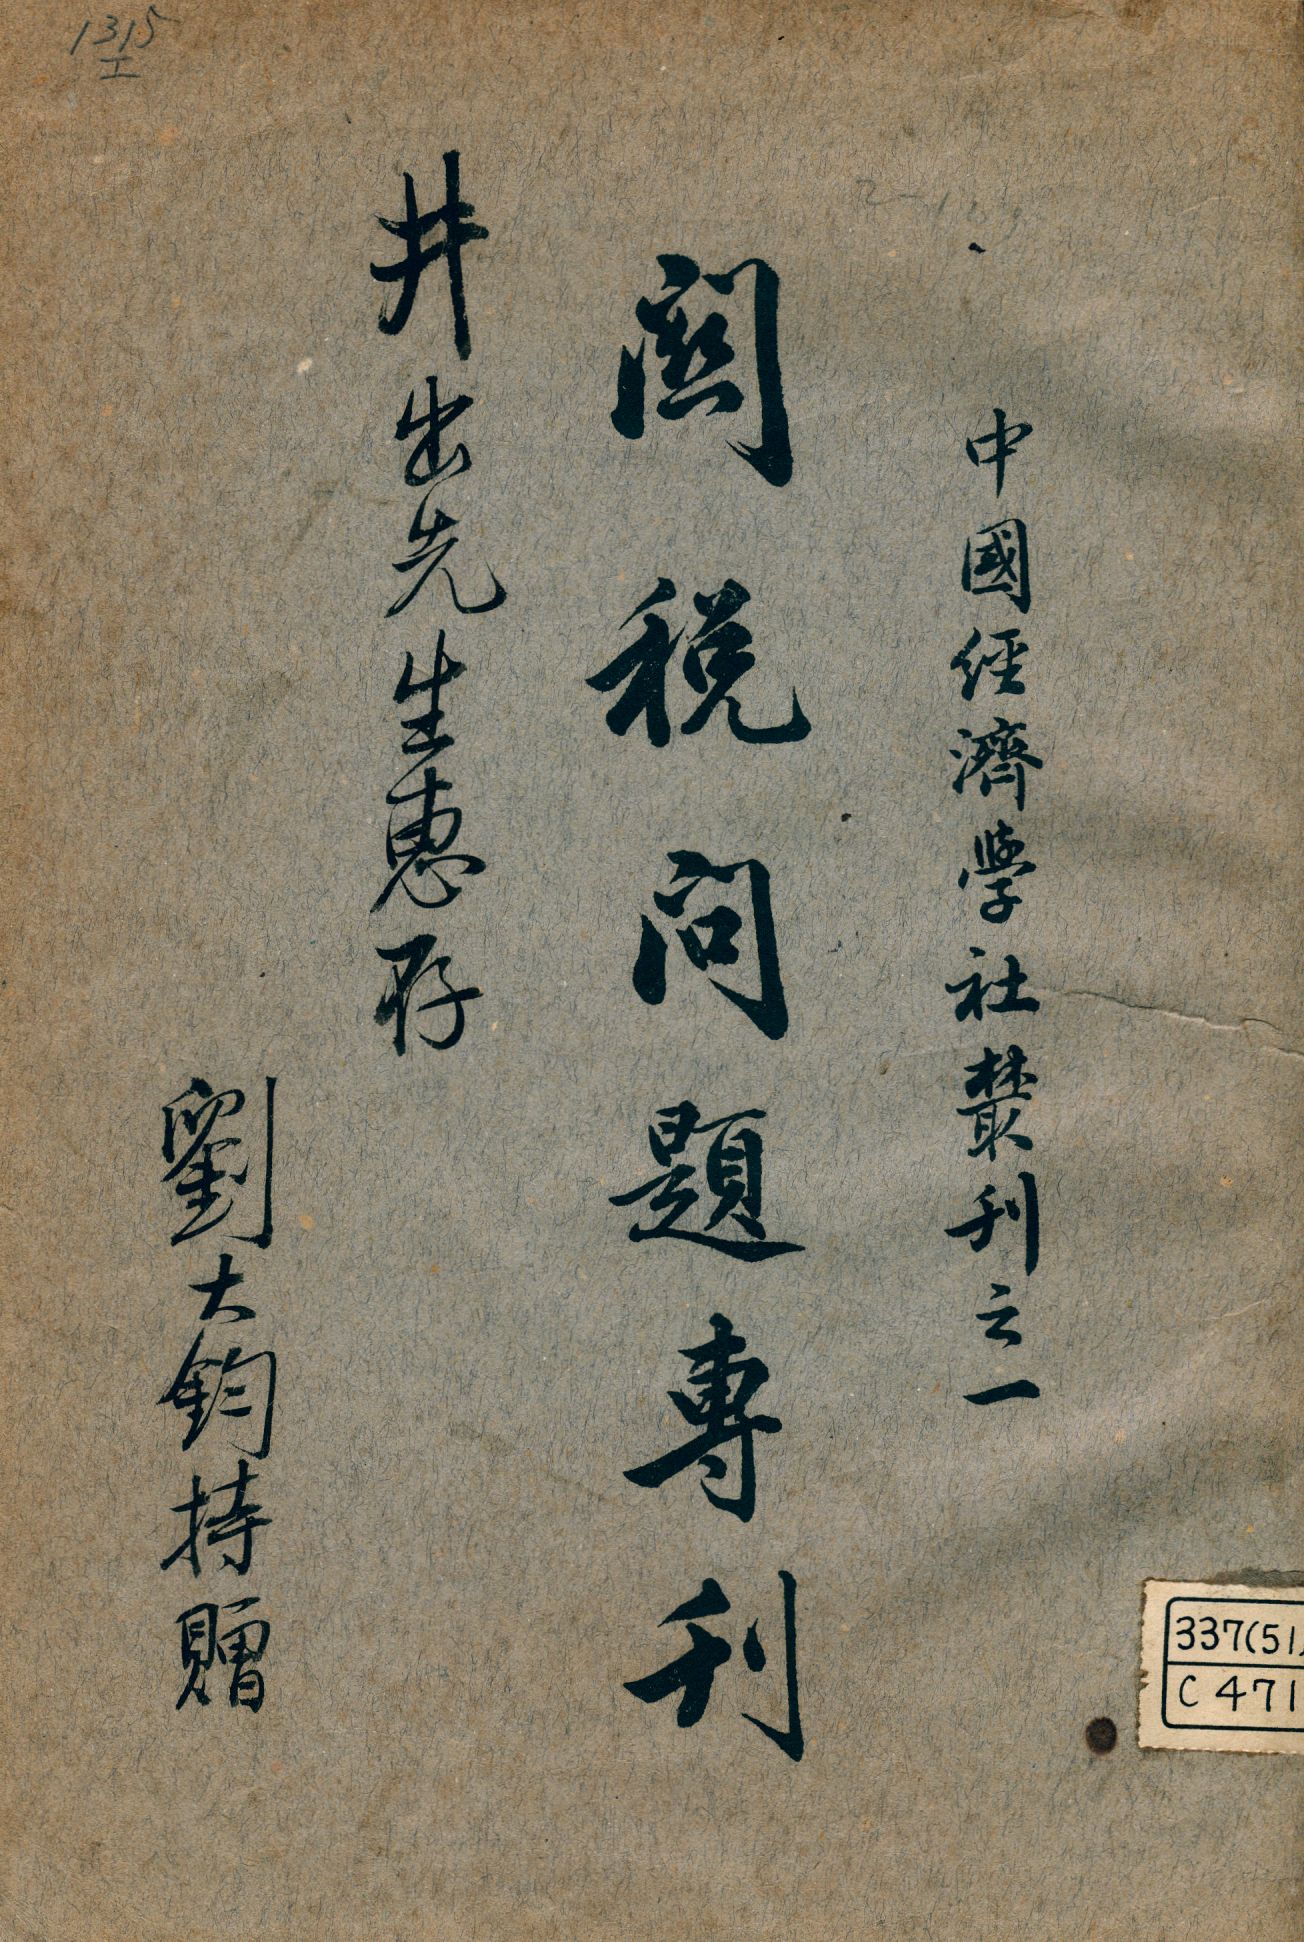 中國經濟學社叢刊之一
關税问題專刊
井出先生惠存
劉大鈞持贈
1315
エ
337(51)
C471